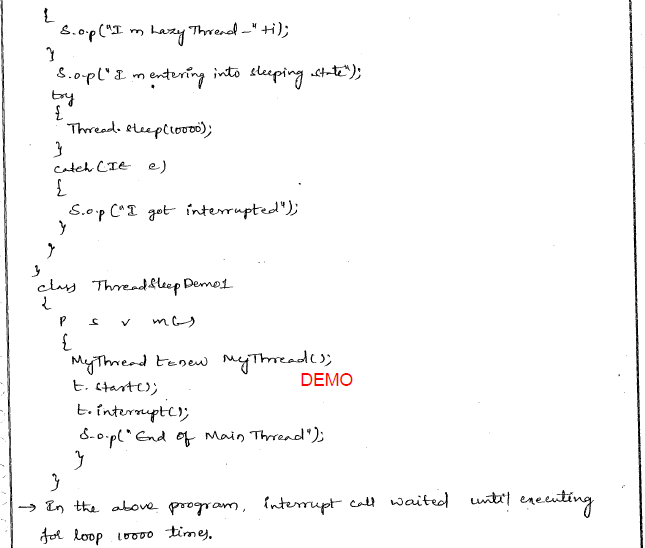 {
S.o.p("I m Lazy Thread -"+i);
}
S.o.p("I m entering into sleeping state");
try
{
Thread.sleep(10000);
}
catch(IE e)
{
S.o.p("I got interrupted");
}
}
}
class ThreadSleepDemo1
{
P s v m(-)
{
MyThread t=new MyThread();
t.start();
DEMO
t.interrupt();
S.o.p("End of Main Thread");
}
}
→ In the above program, interrupt call waited until executing
for loop 10000 times.